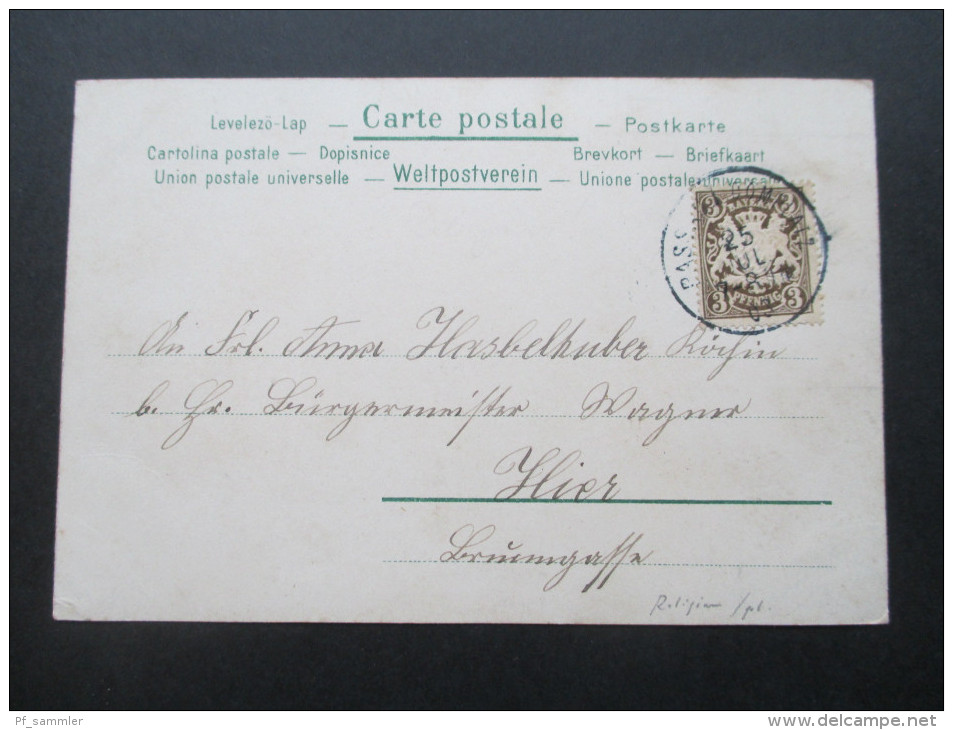 Levelezö-Lap — Carte postale — Postkarte
Cartolina postale — Dopisnice Brevkort — Briefkaart
Union postale universelle — Weltpostverein — Unione postale universale
3
25
JUL
3 PFENNIG 3
An Frl. Anna Haselhuber Köchin
b. Hr. Bürgermeister Wagner
Hier
Brunngasse
Religion
Pf_sammler
www.delcampe.net